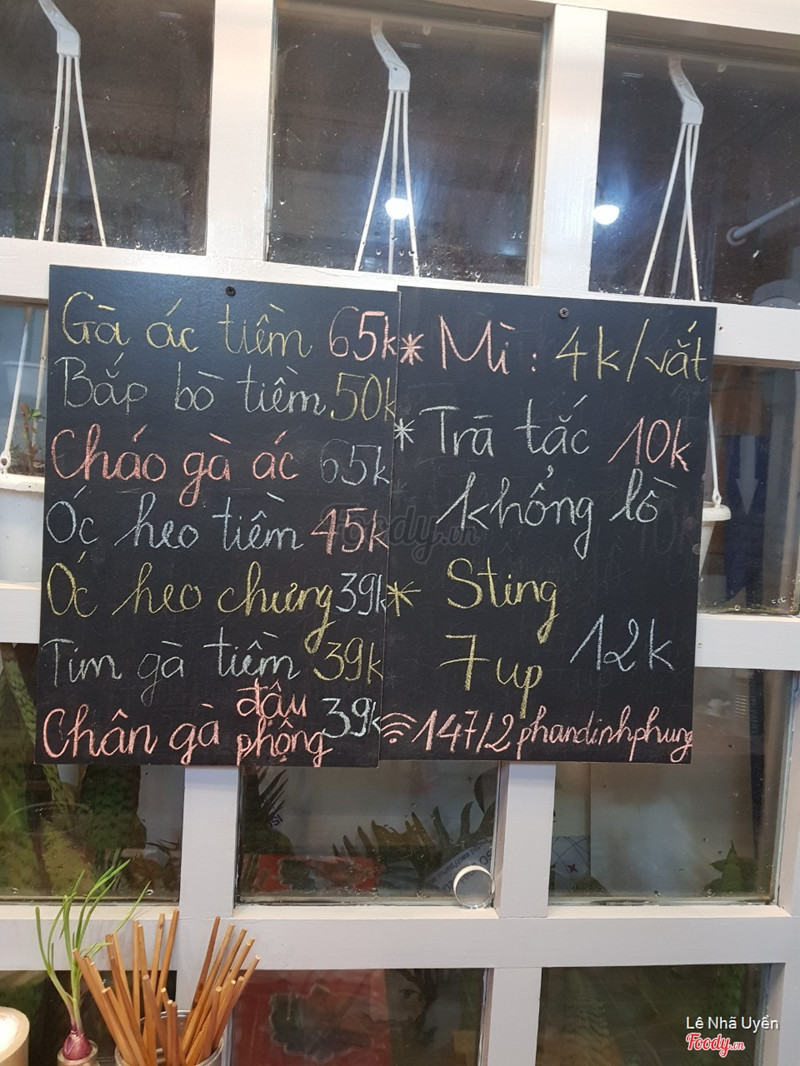 Gà ác tiềm 65k
Bắp bò tiềm 50k
Cháo gà ác 65k
Óc heo tiềm 45k
Óc heo chưng 39k
Tim gà tiềm 39k
Chân gà đậu phộng 39k
* Mì : 4k/vắt
* Trà tắc 10k
khổng lồ
* Sting
7up 12k
147/2phandinhphung
Foody.vn
Lê Nhã Uyển
Foody.vn